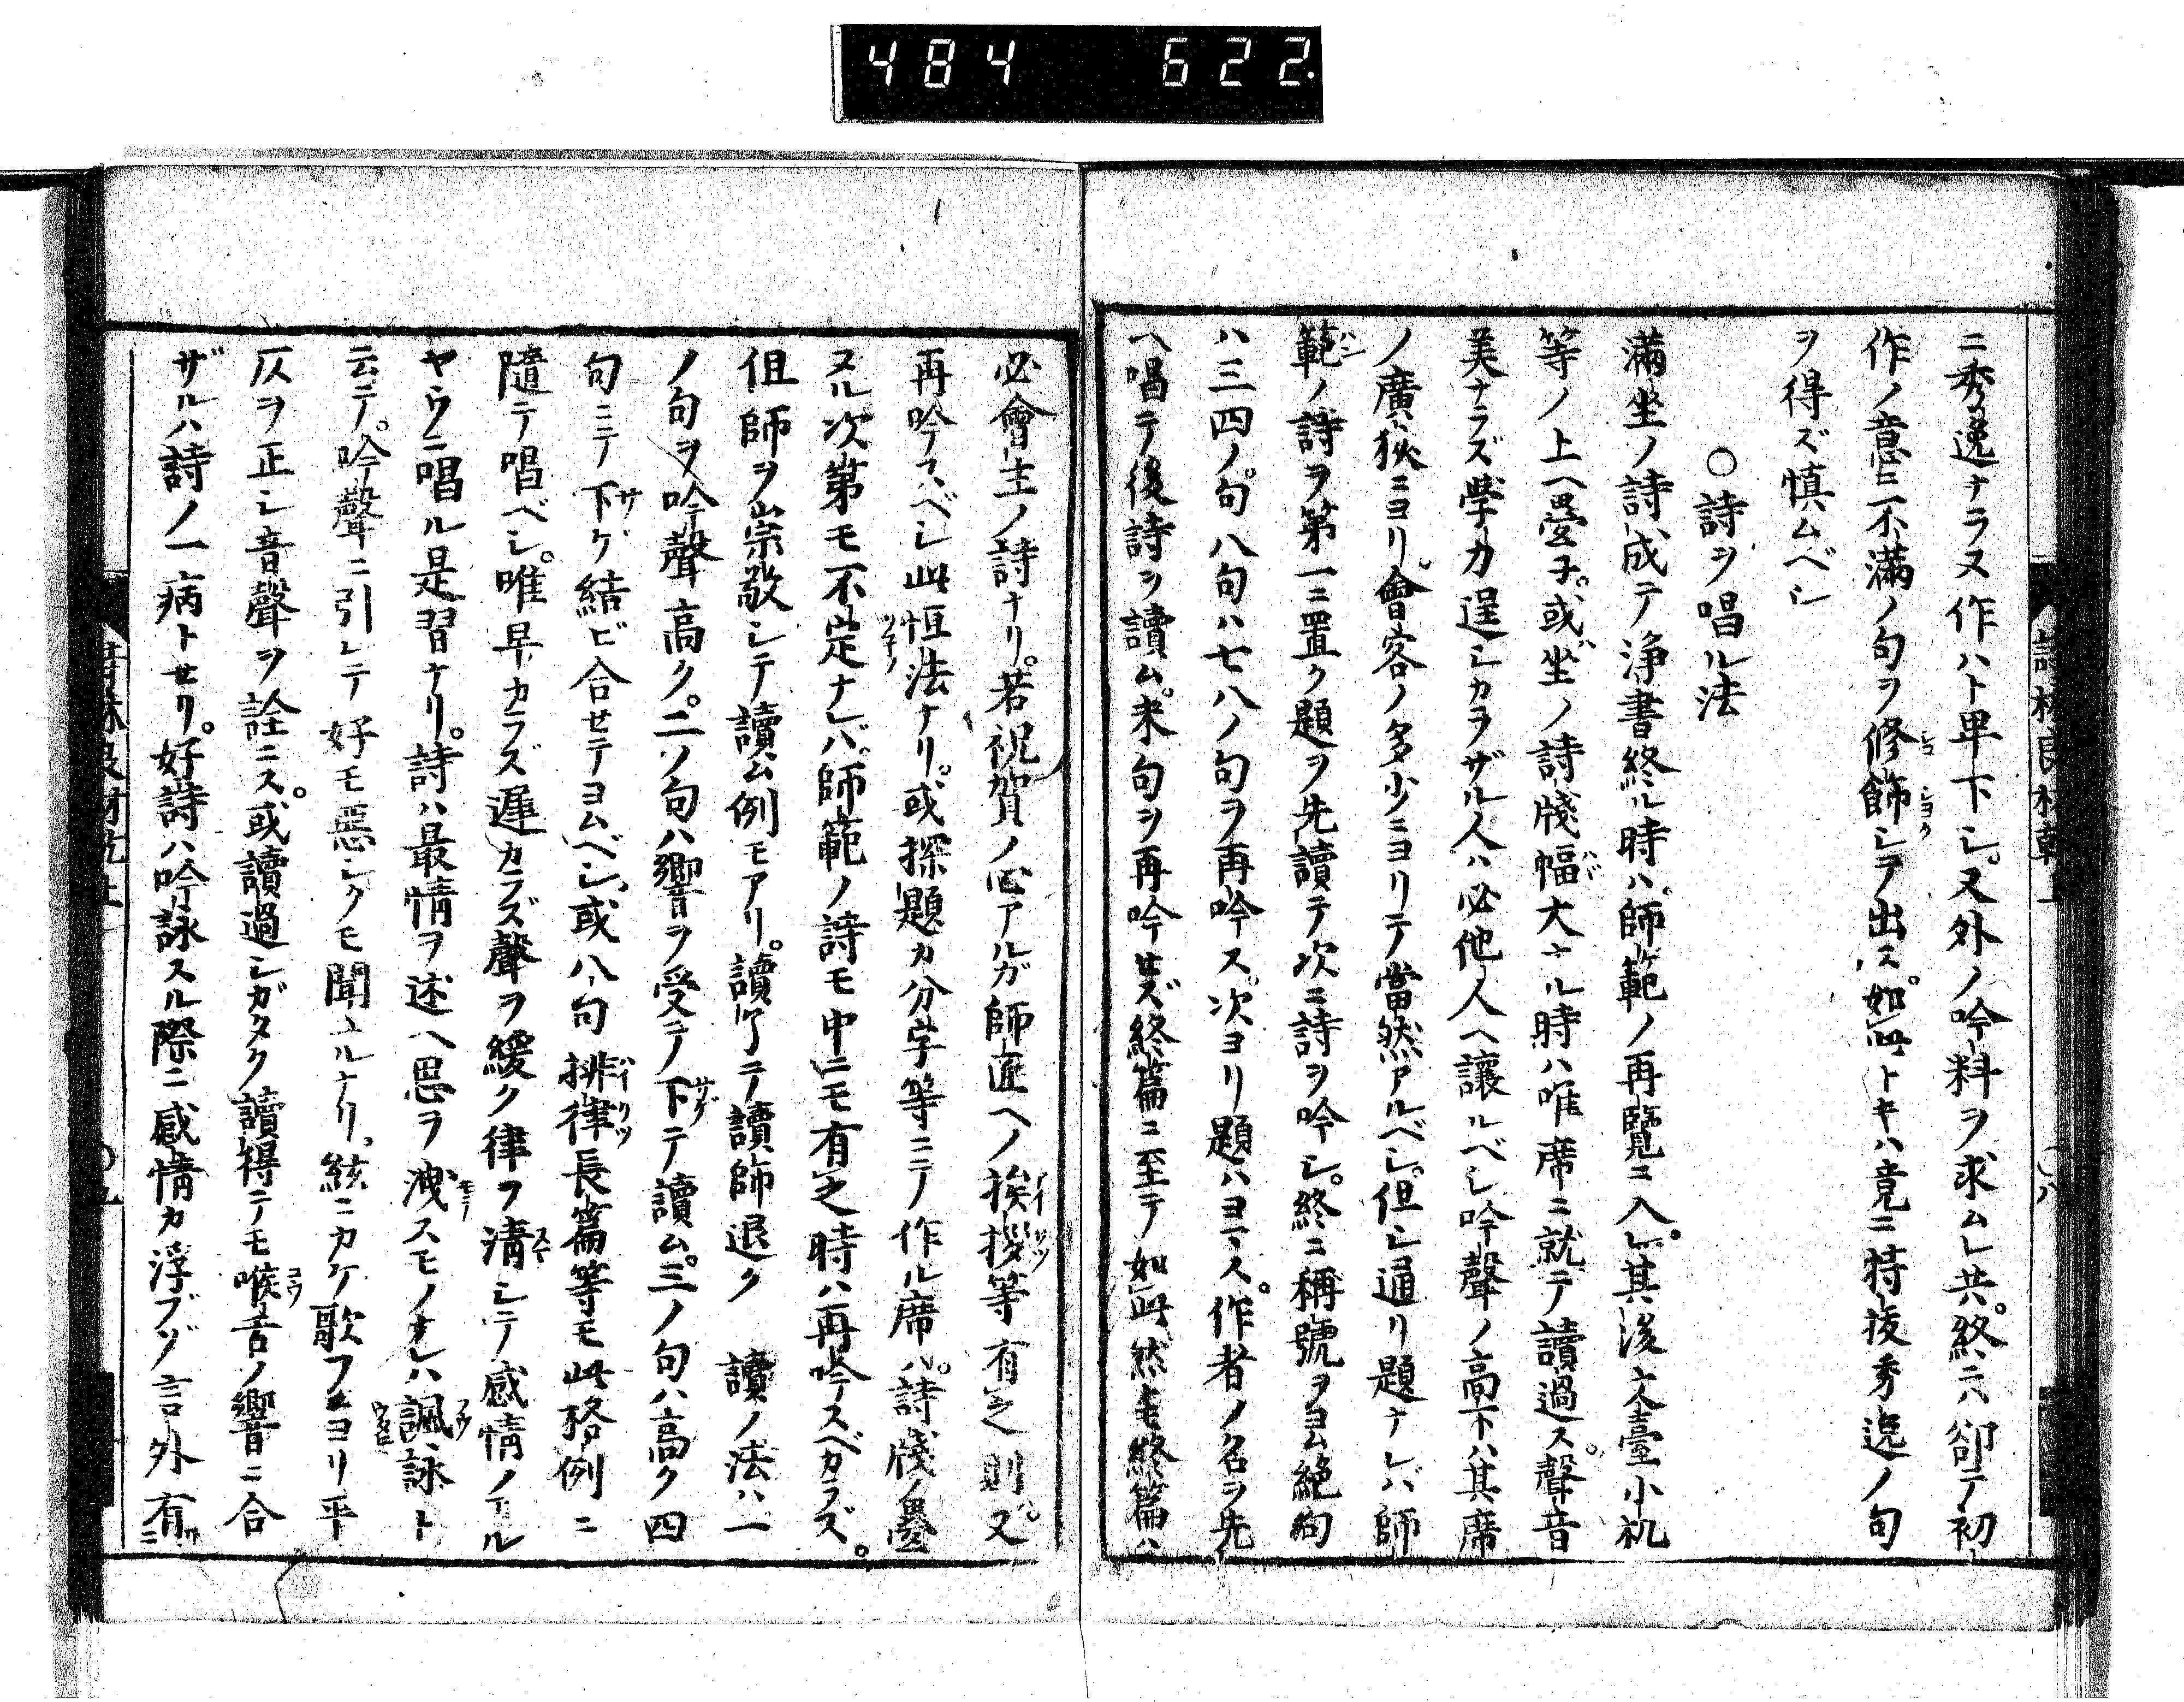 484 622
ニ秀逸ナラヌ作ハト卑下シ。又外ノ吟料ヲ求ムレ共。終ニハ卻テ初
作ノ意ニ不満ノ句ヲ修飾シテ出ス。如此トキハ竟ニ特抜秀逸ノ句
ヲ得ズ慎ムベシ
○詩ヲ唱ル法
満坐ノ詩成テ浄書終ル時ハ。師範ノ再覽ニ入レ。其後文臺小机
等ノ上ヘ置子。或ハ坐ノ詩牋幅大ナル時ハ唯席ニ就テ讀過ス。聲音
美ナラズ學力逞シカラザル人ハ必他人ヘ讓ルベシ吟聲ノ高下ハ其席
ノ廣狹ニヨリ。會客ノ多少ニヨリテ當然アルベシ。但シ通リ題ナレバ師
範ノ詩ヲ第一ニ置ク題ヲ先讀テ次ニ詩ヲ吟シ。終ニ稱號ヲヨム絶句
ハ三四ノ句八句ハ七八ノ句ヲ再吟ス。次ヨリ題ハヨマス。作者ノ名ヲ先
ヘ唱テ後詩ヲ讀ム。末句ヲ再吟セズ終篇ニ至テ如此然モ終篇ハ
必會主ノ詩ナリ。若祝賀ノ心アルガ師匠ヘノ挨拶等有之則ハ。又
再吟スベシ此恒法ナリ。或探題カ分字等ニテノ作ル席ハ。詩牋ノ疊
ヌル次第モ不定ナレバ。師範ノ詩モ中ニモ有之時ハ再吟スベカラズ。
但師ヲ崇敬シテ讀ム例モアリ。讀了テ讀師退ク 讀ノ法ハ一
ノ句ヲ吟聲高ク。二ノ句ハ響ヲ受テ下テ讀ム。三ノ句ハ高ク四
句ニテ下ゲ結ビ合セテヨムベシ。或八句排律長篇等モ此格例ニ
隨テ唱ベシ。唯早カラズ遲カラズ聲ヲ緩ク律ヲ清シテ感情ノ有ル
ヤウニ唱ル是習ナリ。詩ハ最情ヲ述ヘ思ヲ洩スモノナレハ諷詠ト
云テ。吟聲ニ引レテ好モ惡シクモ聞ユルナリ。絃ニカケ歌フヨリ平
仄ヲ正シ音聲ヲ詮ニス。或讀過シガタク讀得テモ喉音ノ響ニ合
ザルハ詩ノ一病トセリ。好詩ハ吟詠スル際ニ感情カ浮ブゾ言外有